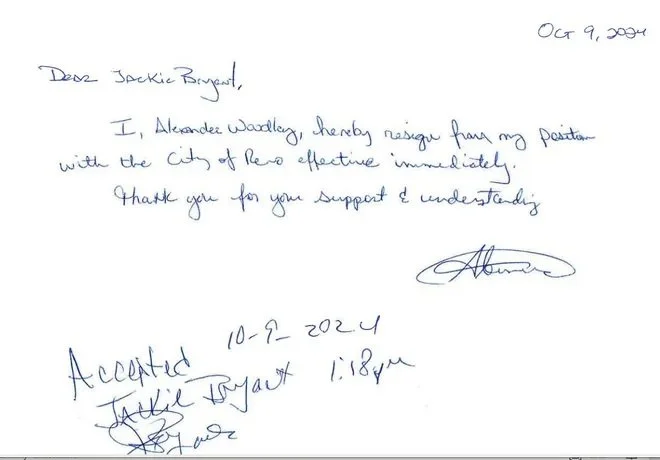 Oct 9, 2024
Dear Jackie Bryant,
I, Alexander Woodley, hereby resign from my position
with the City of Reno effective immediately.
Thank you for your support & understanding
10-9-2024
Accepted
Jackie Bryant 1:18pm